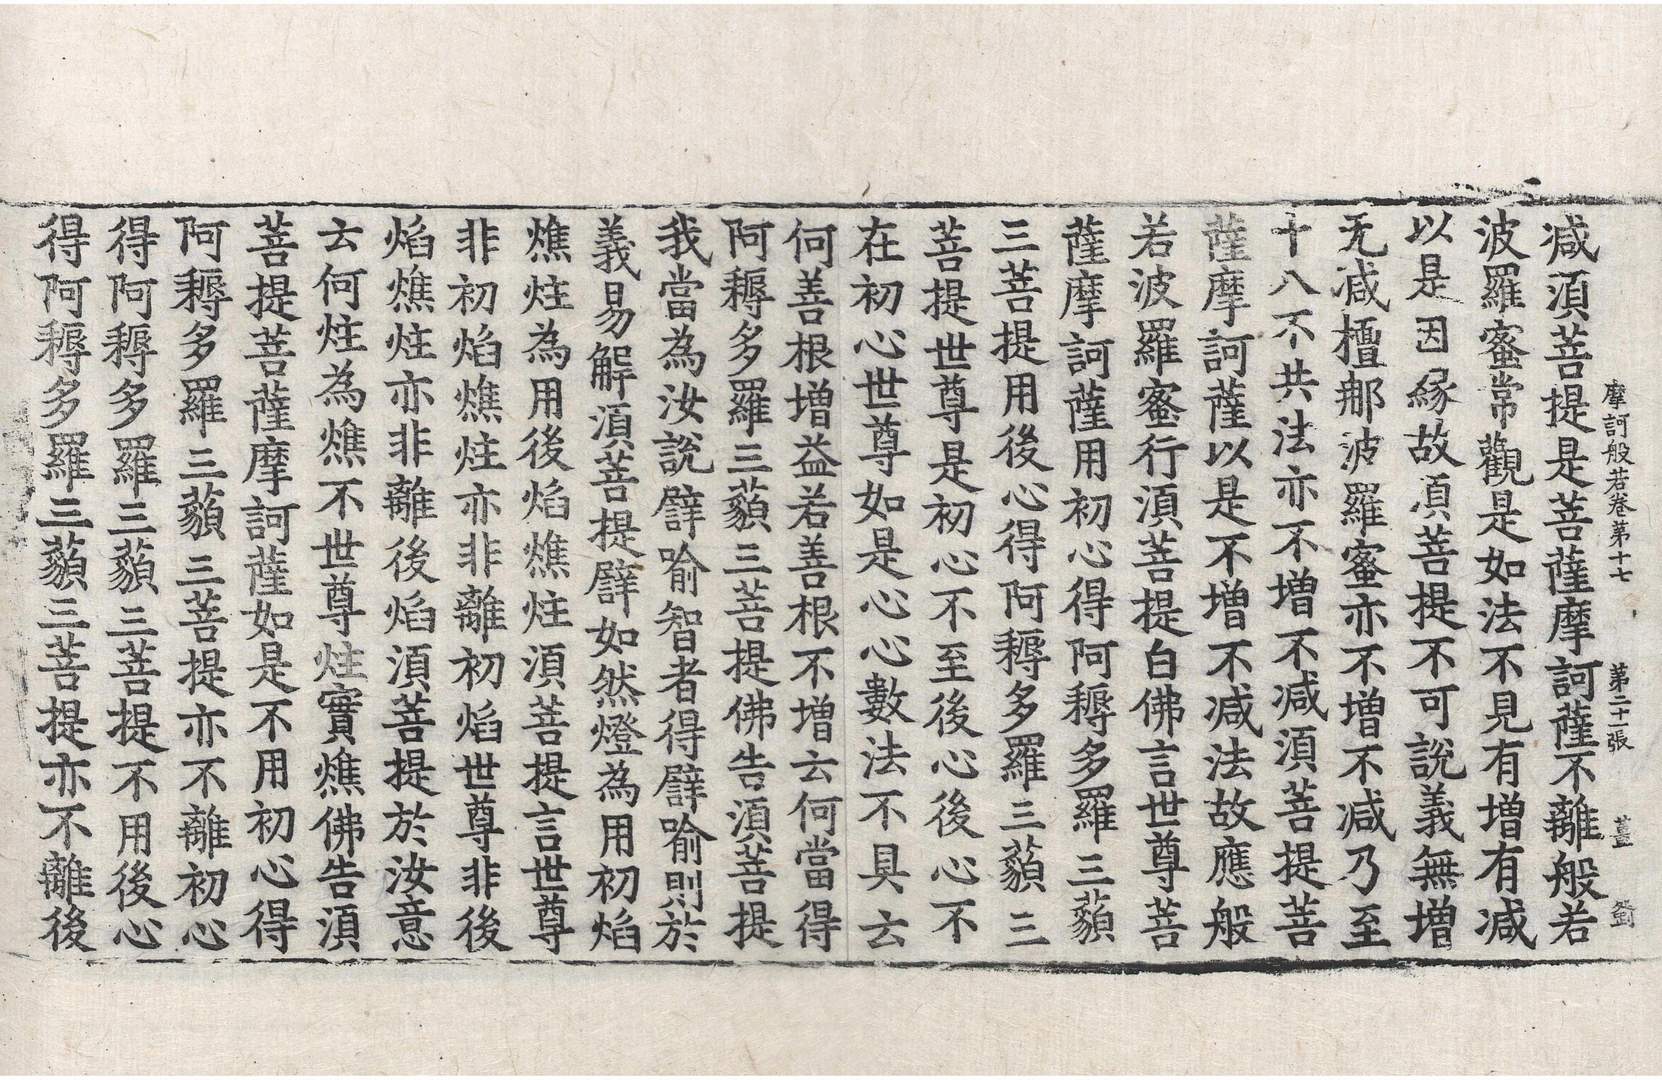 摩訶般若卷第十七　第二十一張　薑
減湏菩提是菩薩摩訶薩不離般若
波羅蜜常觀是如法不見有增有減
以是因緣故湏菩提不可說義無增
无減檀郍波羅蜜亦不增不減乃至
十八不共法亦不增不減湏菩提菩
薩摩訶薩以是不增不減法故應般
若波羅蜜行湏菩提白佛言世尊菩
薩摩訶薩用初心得阿耨多羅三藐
三菩提用後心得阿耨多羅三藐三
菩提世尊是初心不至後心後心不
在初心世尊如是心心數法不具云
何善根增益若善根不增云何當得
阿耨多羅三藐三菩提佛告湏菩提
我當為汝說譬喻智者得譬喻則於
義易解湏菩提譬如然燈為用初焰
燋炷為用後焰燋炷湏菩提言世尊
非初焰燋炷亦非離初焰世尊非後
焰燋炷亦非離後焰湏菩提於汝意
云何炷為燋不世尊炷實燋佛告湏
菩提菩薩摩訶薩如是不用初心得
阿耨多羅三藐三菩提亦不離初心
得阿耨多羅三藐三菩提不用後心
得阿耨多羅三藐三菩提亦不離後